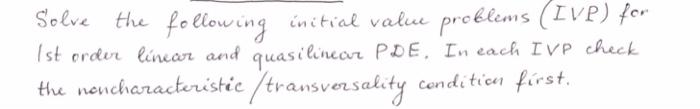 Solve the following initial value problems (IVP) for
1st order linear and quasilinear PDE. In each IVP check
the noncharacteristic/transversality condition first.